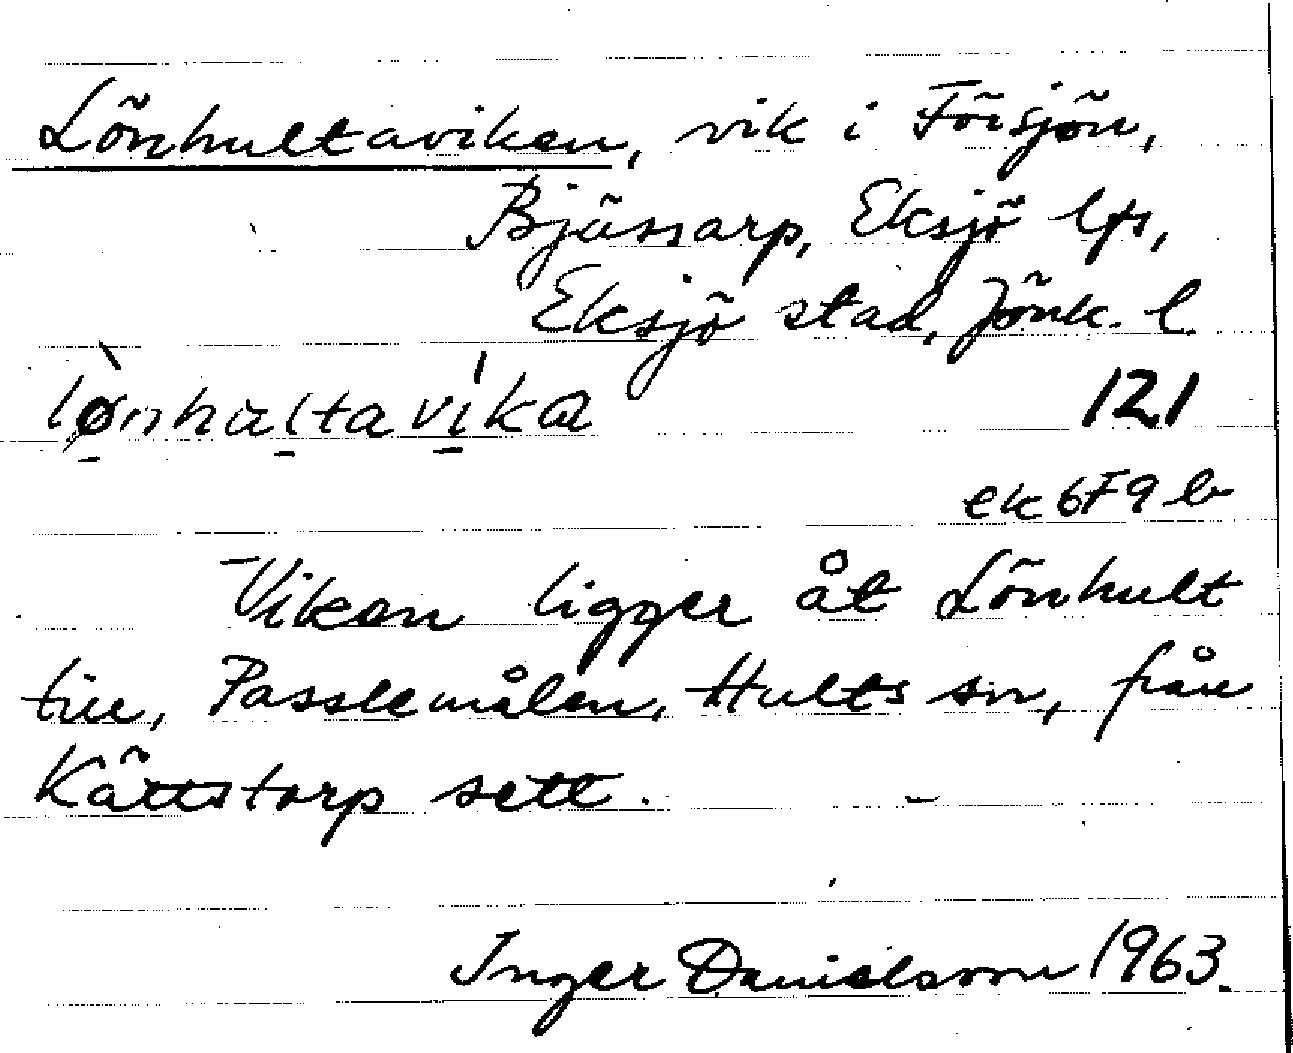 Lönhultaviken, vik i Försjön,
Bjässarp, Eksjö lfs,
Eksjö stad, Jönk. l.
lø̀nhaltavíka
121
ek 6F9b
Viken ligger åt Lönhult
till, Passlemålen, Hults sn, från
Kättstorp sett.
Inger Danielsson 1963.